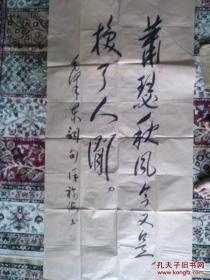 萧瑟秋风今又是
换了人间。
毛泽东词句